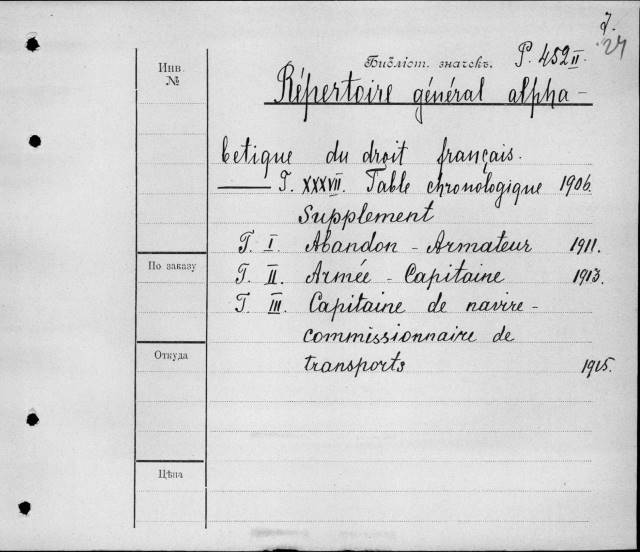 7.
27
Инв.
№
Библіот. значекъ. P. 452 II.
Répertoire général alpha-
betique du droit français.
—— T. XXXVII. Table chronologique 1906.
Supplement
T. I. Abandon - Armateur 1911.
T. II. Armée - Capitaine 1913.
T. III. Capitaine de navire -
commissionnaire de
transports 1915.
По заказу
Откуда
Цѣна